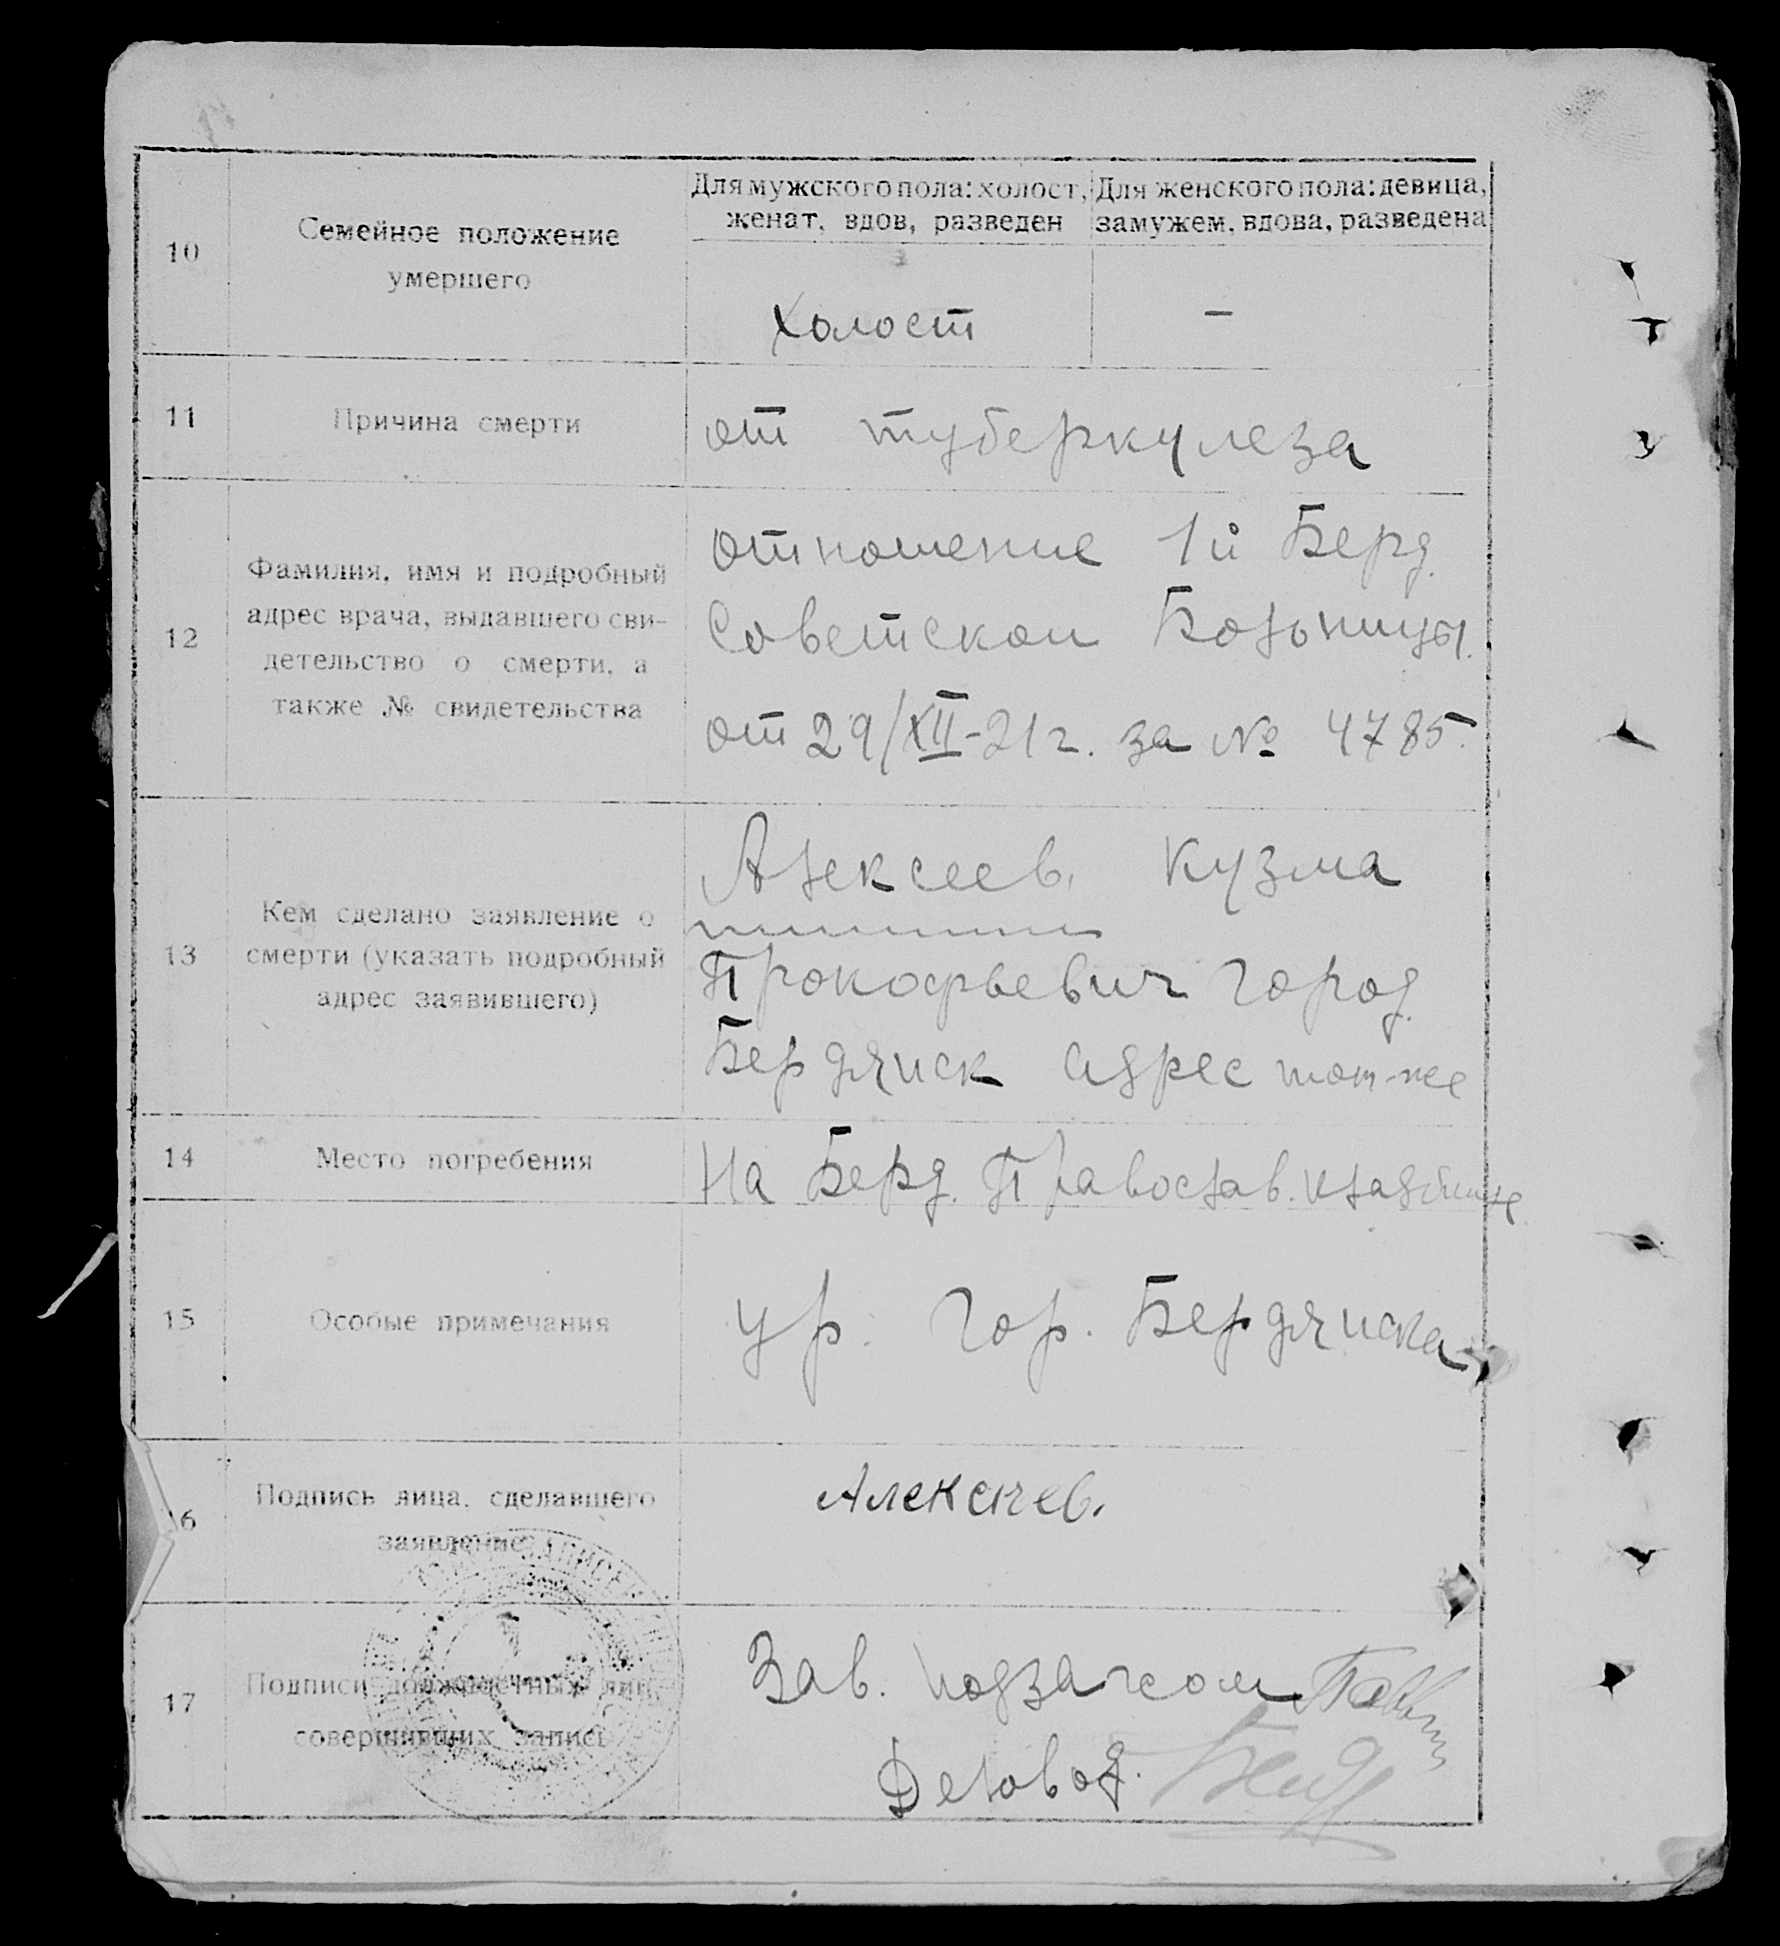 10
Семейное положение
умершего
Для мужского пола: холост,
женат, вдов, разведен
Для женского пола: девица,
замужем, вдова, разведена
холост
–
11
Причина смерти
от туберкулеза
12
Фамилия, имя и подробный
адрес врача, выдавшего сви-
детельство о смерти, а
также № свидетельства
отношение 1й Берд.
Советской Больницы.
от 29/XII-21г. за № 4785.
13
Кем сделано заявление о
смерти (указать подробный
адрес заявившего)
Алексеев Кузма
Прокофьевич город
Бердянск адрес тот-же
14
Место погребения
На Берд. Православ. кладбище
15
Особые примечания
ур. гор. Бердянска
16
Подпись лица, сделавшего
заявление
Алексеев.
17
Подписи должностных лиц,
совершивших запись
Зав. подзагсом
Деловод.